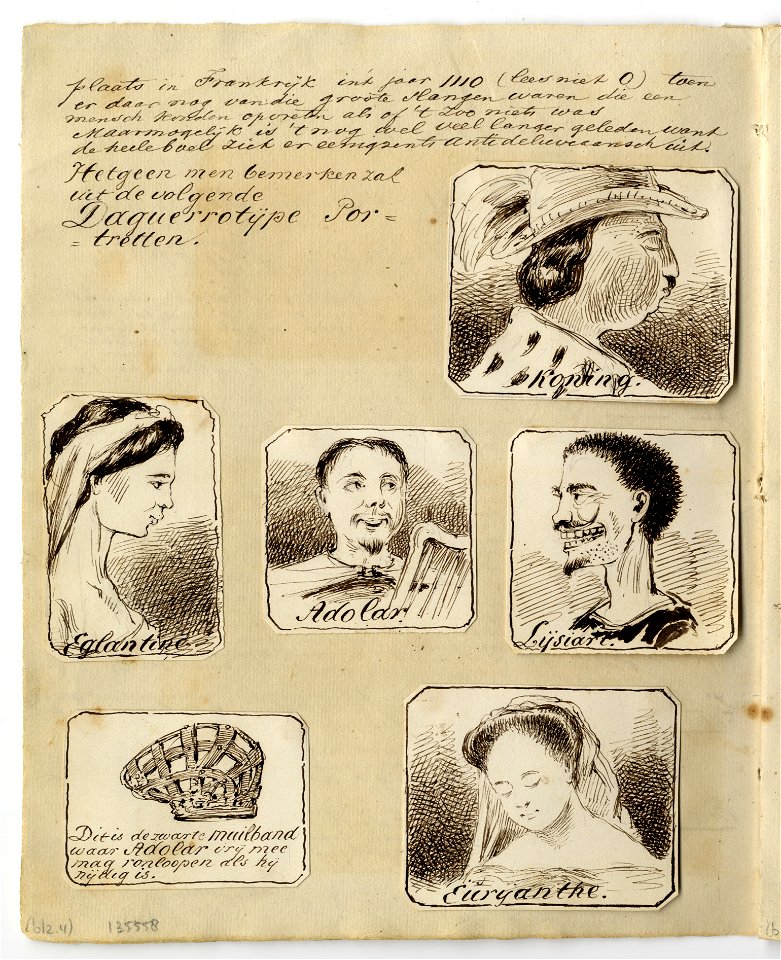 plaats in Frankrijk in't jaar 1110 (lees niet 0) toen
er daar nog van die groote slangen waren die een
mensch konden opvreten als of 't zoo niets was
Maar mogelijk is 't nog wel veel langer geleden want
de heele boel ziet er eenigzents antideluviaansch uit.
Hetgeen men bemerken zal
uit de volgende
Daguerrotÿpe Por=
=tretten.
Koning.
Eglantine.
Adolar
Lÿsiart.
Dit is de zwarte muilband
waar Adolar vrij mee
mag rondloopen als hij
nijdig is.
Eurÿanthe.
(blz. 4) 135558